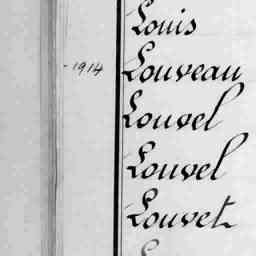 Louis
- 1914 Louveau
Louvel
Louvel
Louvet